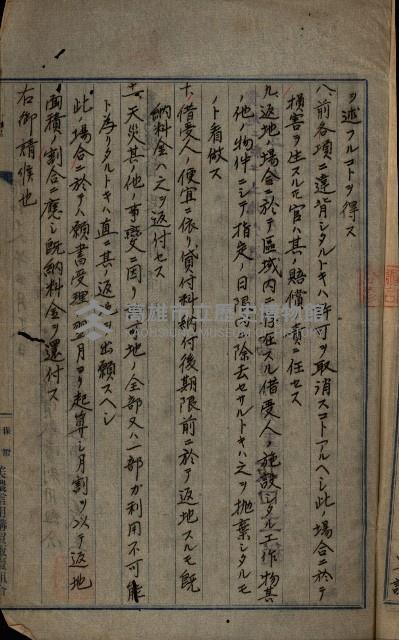 ヲ述フルコトヲ得ス
八、前各項ニ違背シタルトキハ許可ヲ取消スコトアルヘシ此ノ場合ニ於テ
損害ヲ生スルモ官ハ其ノ賠償ノ責ニ任セス
九、返地ノ場合ニ於テ區域内ニ存在スル借受人ノ施設シタル工作物其
他ノ物件ニシテ指定ノ日限内除去セサルトキハ之ヲ拋棄シタルモ
ノト看做ス
十、借受人ノ便宜ニ依リ貸付料納付後期限前ニ於テ返地スルモ既
納料金ハ之ヲ返付セス
十一、天災其ノ他ノ事變ニ因リ許可地ノ全部又ハ一部カ利用不可能
ト為リタルトキハ直ニ其ノ返地ヲ出願スヘシ
此ノ場合ニ於テハ願書受理ノ翌月ヨリ起算シ月割ヲ以テ返地
面積ノ割合ニ應シ既納料金ヲ還付ス
右御請候也
高雄市立歷史博物館